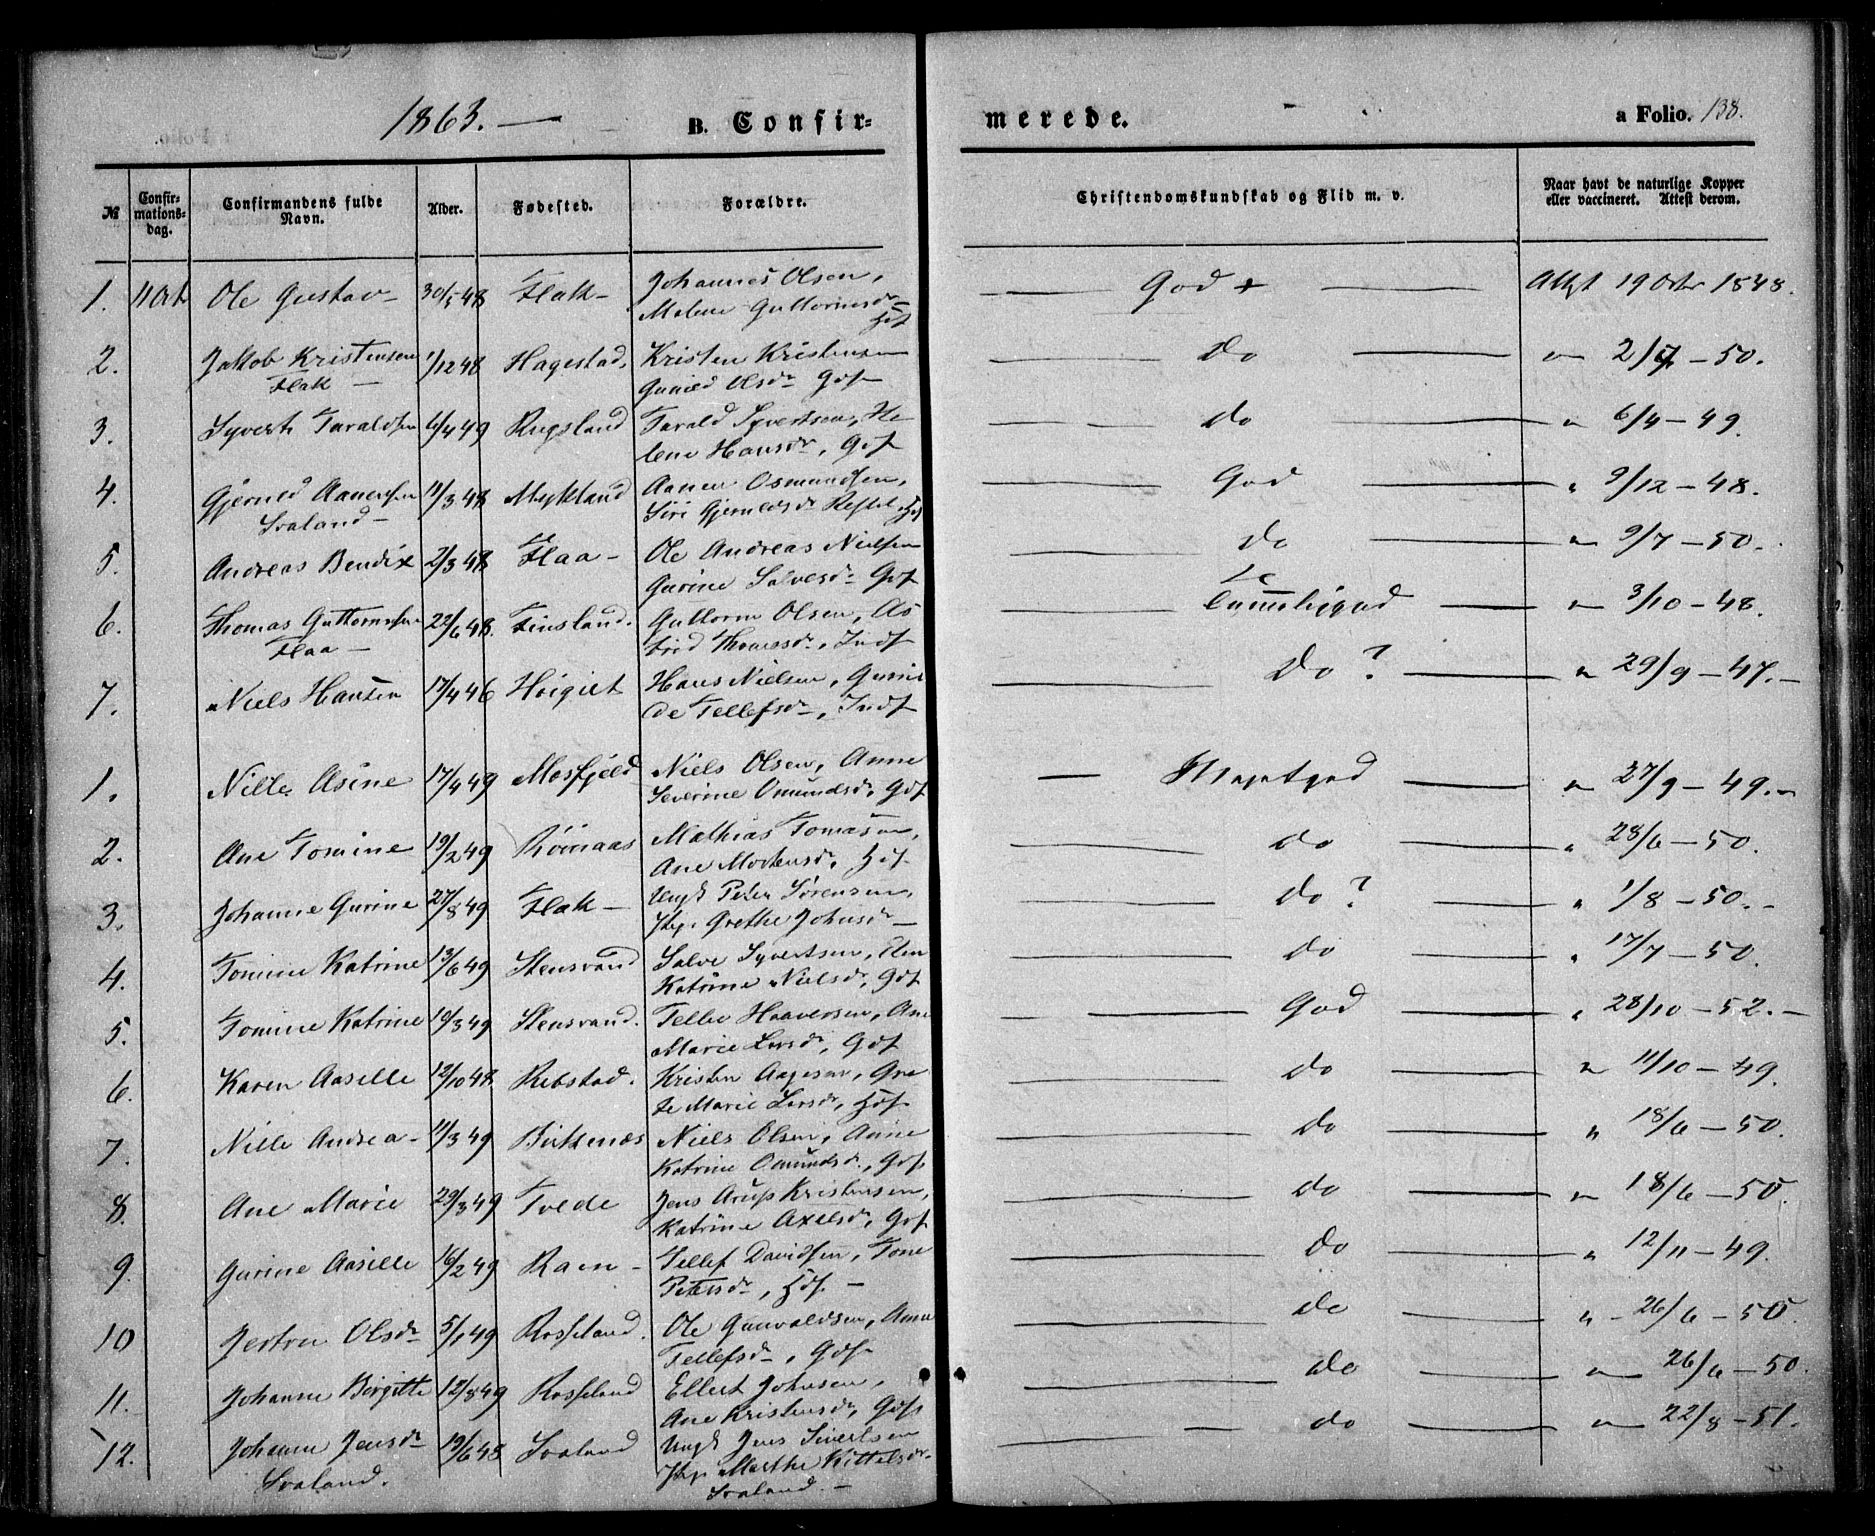 1863. —
B. Confir-
merede.
a Folio. 138.
№
Confir-
mations-
dag.
Confirmandens fulde
Navn.
Alder.
Fødested.
Forældre.
Christendomskundskab og Flid m. v.
Naar havt de naturlige Kopper
eller vaccineret. Attest derom.
1. 11 Oct Ole Gustav 30/5 48 Flak Johannes Olsen,
Malene Guttormsdr God + Attst 19 Octbr 1848.
2. Jakob Kristensen 1/12 48 Hagestad. Kristen Kristensen
Flak Gunild Olsdr Gdf Do " 2/7 - 50.
3. Syvert Taraldsen 6/4 49 Rugsland Tarald Syvertsen, He
lene Hansdr, Gdf do " 6/4 - 49.
4. Gjerued Aanensen 11/3 48 Mykland Aanen Osmundsen,
Svaland Siri Gjeruldsdr God " 9/12 - 48.
5. Andreas Bendix 2/3 48 Flaa Ole Andreas Nielsen
Gurine Salvesdr Gdf do " 9/7 - 50.
6. Thomas Guttormsen 22/6 48. Finsland. Guttorm Olsen, As
Flaa trid Thomesdr, Indf Temmeliggod " 3/10 - 48.
7. Niels Hansen 17/4 46 Høigilt Hans Nielsen, Guni
de Tellefsdr, Indf Do ? " 29/9 - 47.
1. Nille Asine 17/4 49 Mosfjeld Niels Olsen, Anne
Severine Omundsdr, Gdf Megetgod " 27/9 - 49.
2. Ane Tomine 19/2 49 Mathias Tomasen,
Ane Mortensdr, Hdf do " 28/6 - 50.
3. Johanne Gurine 27/8 49 Flak Ungk Peter Sørensen,
Pkp. Grethe Johnsdr do ? " 1/8 - 50.
4. Tomine Katrine 13/6 49 Stensvand Salve Syvertsen, Elen
Katrine Nielsdr, Gdf do " 17/7 - 50.
5. Tomine Katrine 10/3 49 Stensvand. Tellef Haaversen, Ane
Marie Larsdr, Gdf God " 28/10 - 52.
6. Karen Aaselle 12/10 48 Rebstad. Kristen Aagesen, Gre
te Marie Larsdr, Hdf do " 11/10 - 49.
7. Nille Andrea 11/3 49 Birkenæs Niels Olsen, Anne
Katrine Omundsdr, Gdf do " 18/6 - 50.
8. Ane Marie 29/3 49 Tvede Jens Arup Kristensen,
Katrine Axelsdr, Gdf do " 18/6 - 50
9. Gurine Aaselle 16/2 49 Ram Tellef Davidsen, Tone
Petersdr, Hdf do " 12/11 - 49.
10 Jertru Olsdr 5/1 49 Rosseland. Ole Gunvaldsen, Anne
Tellefsdr, Gdf do " 26/6 - 50
11. Johanne Birgitte 12/8 49 Rosseland Ellert Johnsen,
Ane Kristensdr, Gdf do " 26/6 - 50.
12. Johanne Jensdr 19/6 48 Svaland Ungk Jens Sivertsen
Svaland. Pkp. Marthe Kittelsdr do " 22/8 - 51.
Svaland.